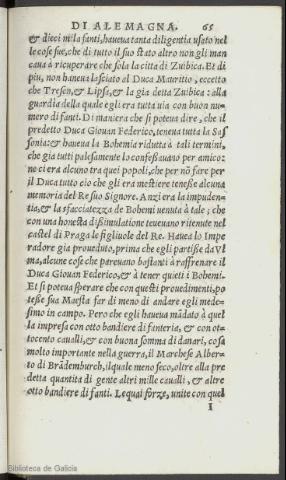 DI ALEMAGNA. 65
& dieci mila fanti, haueua tanta diligentia usato nel
le cose sue, che di tutto il suo stato altro non gli man
caua à ricuperare che sola la città di Zuibica. Et di
piu, non haueua lasciato al Duca Mauritio, eccetto
che Tresen, & Lipsa, & la gia detta Zuibica: alla
guardia della quale egli era tutta uia con buon nu=
mero di fanti. Di maniera che si poteua dire, che il
predetto Duca Giouan Federico, teneua tutta la Sas
sonia: & haueua la Bohemia ridutta à tali termini,
che gia tutti palesamente lo confessauano per amico:
ne ci era alcuno tra quei popoli, che per nõ fare per
il Duca tutto cio che gli era mestiere tenesse alcuna
memoria del Re suo Signore. Anzi era la impuden=
tia, & la sfacciatezza de Bohemi uenuta à tale; che
con una honesta dissimulatione teneuano ritenute nel
castel di Praga le figliuole del Re. Haueua lo Impe
radore gia proueduto, prima che egli partisse da Vl
ma, alcune cose che pareuano bastanti à raffrenare il
Duca Giouan Federico, & à tener quieti i Bohemi.
Et si poteua sperare che con questi prouedimenti, po
tesse sua Maestà far di meno di andare egli mede=
simo in campo. Pero che egli haueua mãdato à quel
la impresa con otto bandiere di fanteria, & con ot=
tocento caualli, & con buona somma di danari, cosa
molto importante nella guerra, il Marchese Alber=
to di Brãdemburch, il quale meno seco, oltre alla pre
detta quantita di gente altri mille caualli, & altre
otto bandiere di fanti. Le quai forze, unite con quel
I
Biblioteca de Galicia